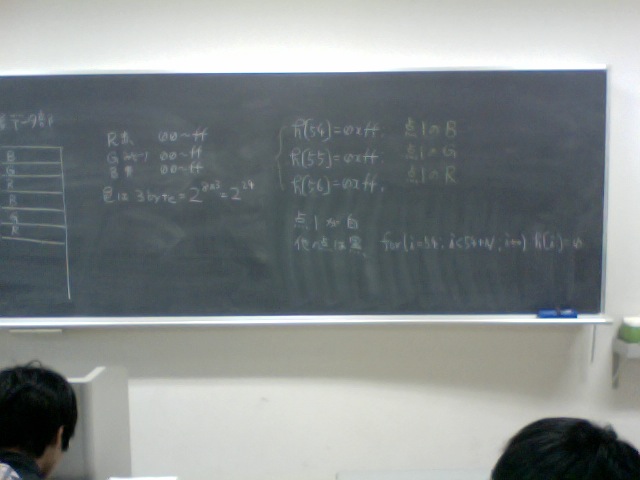 B
G
R
B
G
R
R 赤 00~ff
G みどり 00~ff
B 青 00~ff
色は 3byte=2^8x3=2^24
R(54)=0xff. 点1の B
R(55)=0xff. 点1の G
R(56)=0xff. 点1の R
点1が白
他の点は黒. for(i=54; i<54+N; i++) R(i)=0